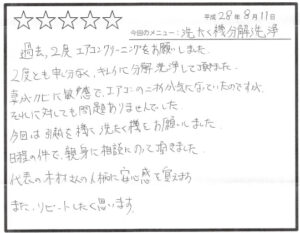 平成28年8月11日
今回のメニュー：洗たく機分解洗浄
過去、2度エアコンクリーニングをお願いしました。
2度とも申し分なく、キレイに分解洗浄して頂きました。
敏感で、エアコンのニオイが気になっていたのですが、
それに対しても問題ありませんでした。
今回は引越を機に洗たく機をお願いしました。
日程の件で、親身に相談にのって頂きました。
代表の木村さんの人柄に安心感を覚えます
また、リピートしたく思います。